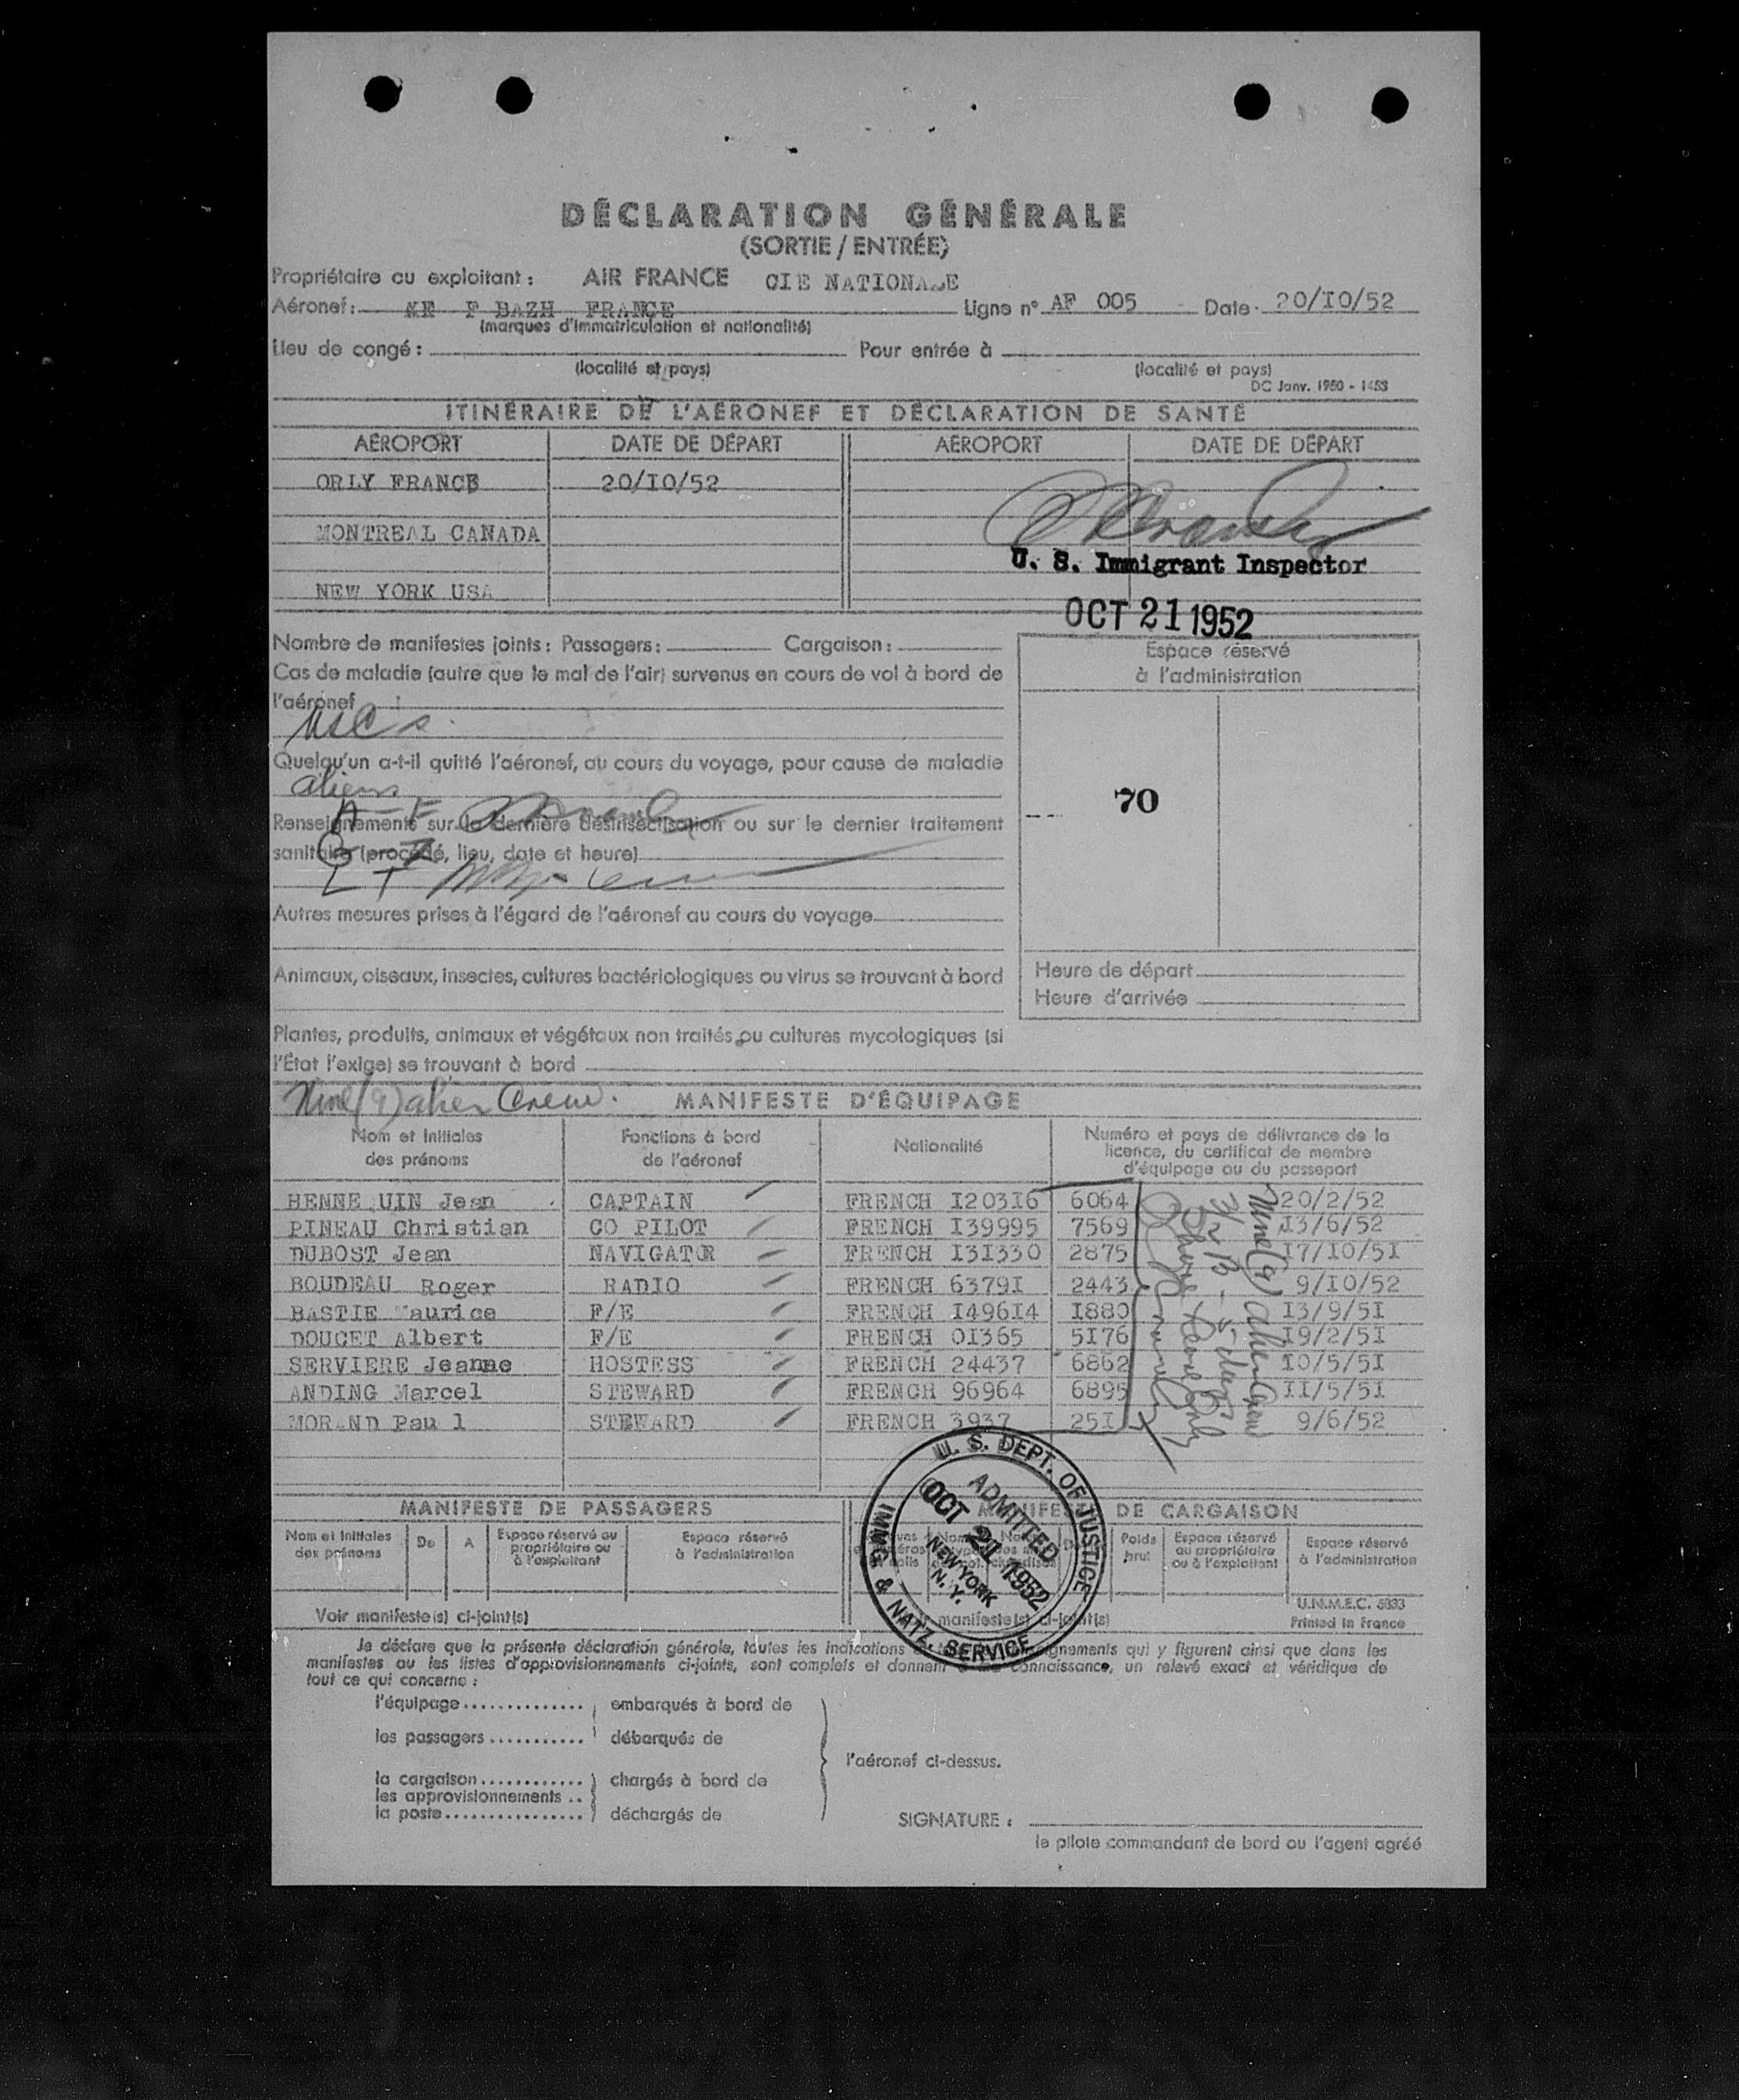 DÉCLARATION GÉNÉRALE
(SORTIE / ENTRÉE)
Propriétaire ou exploitant : AIR FRANCE CIE NATIONALE
Aéronef : F BAZH FRANCE Ligne n° AF 005 Date 20/IO/52
(marques d'immatriculation et nationalité)
Lieu de congé : Pour entrée à
(localité et pays) (localité et pays)
DC Janv. 1950 - 1453
ITINÉRAIRE DE L'AÉRONEF ET DÉCLARATION DE SANTÉ
AÉROPORT DATE DE DÉPART AÉROPORT DATE DE DÉPART
ORLY FRANCE 20/IO/52
MONTREAL CANADA
U. S. Immigrant Inspector
NEW YORK USA
OCT 21 1952
Nombre de manifestes joints : Passagers : Cargaison :
Espace réservé
à l'administration
Cas de maladie (autre que le mal de l'air) survenus en cours de vol à bord de
l'aéronef
USCs
Quelqu'un a-t-il quitté l'aéronef, au cours du voyage, pour cause de maladie
aliens
70
Renseignements sur la dernière désinsectisation ou sur le dernier traitement
sanitaire (procédé, lieu, date et heure)
Autres mesures prises à l'égard de l'aéronef au cours du voyage
Animaux, oiseaux, insectes, cultures bactériologiques ou virus se trouvant à bord
Heure de départ
Heure d'arrivée
Plantes, produits, animaux et végétaux non traités ou cultures mycologiques (si
l'État l'exige) se trouvant à bord
Nine (9) alien Crew. MANIFESTE D'ÉQUIPAGE
Nom et Initiales des prénoms Fonctions à bord de l'aéronef Nationalité Numéro et pays de délivrance de la licence, du certificat de membre d'équipage ou du passeport
HENNE UIN Jean CAPTAIN FRENCH I203I6 6064 20/2/52
PINEAU Christian CO PILOT FRENCH I39995 7569 I3/6/52
DUBOST Jean NAVIGATOR FRENCH I3I330 2875 I7/IO/5I
BOUDEAU Roger RADIO FRENCH 6379I 2443 9/IO/52
BASTIE Maurice F/E FRENCH I496I4 I880 I3/9/5I
DOUCET Albert F/E FRENCH OI365 5I76 I9/2/5I
SERVIERE Jeanne HOSTESS FRENCH 24437 6862 IO/5/5I
ANDING Marcel STEWARD FRENCH 96964 6895 II/5/5I
MORAND Pau l STEWARD FRENCH 3937 25I 9/6/52
Nine (9) alien Crew
Shore Leave Only
U. S. DEPT. OF JUSTICE
ADMITTED
OCT 21 1952
NEW YORK
N. Y.
IMMIG & NATZ. SERVICE
MANIFESTE DE PASSAGERS MANIFESTE DE CARGAISON
Nom et Initiales des prénoms De A Espace réservé au propriétaire ou à l'exploitant Espace réservé à l'administration
Poids brut Espace réservé au propriétaire ou à l'exploitant Espace réservé à l'administration
U.N.M.E.C. 5833
Voir manifeste(s) ci-joint(s) manifeste(s) ci-joint(s) Printed in France
Je déclare que la présente déclaration générale, toutes les indications qui y figurent ainsi que dans les
manifestes ou les listes d'approvisionnements ci-joints, sont complets et donnent à ma connaissance, un relevé exact et véridique de
tout ce qui concerne :
l'équipage embarqués à bord de
les passagers débarqués de
l'aéronef ci-dessus.
la cargaison chargés à bord de
les approvisionnements
la poste déchargés de
SIGNATURE :
le pilote commandant de bord ou l'agent agréé